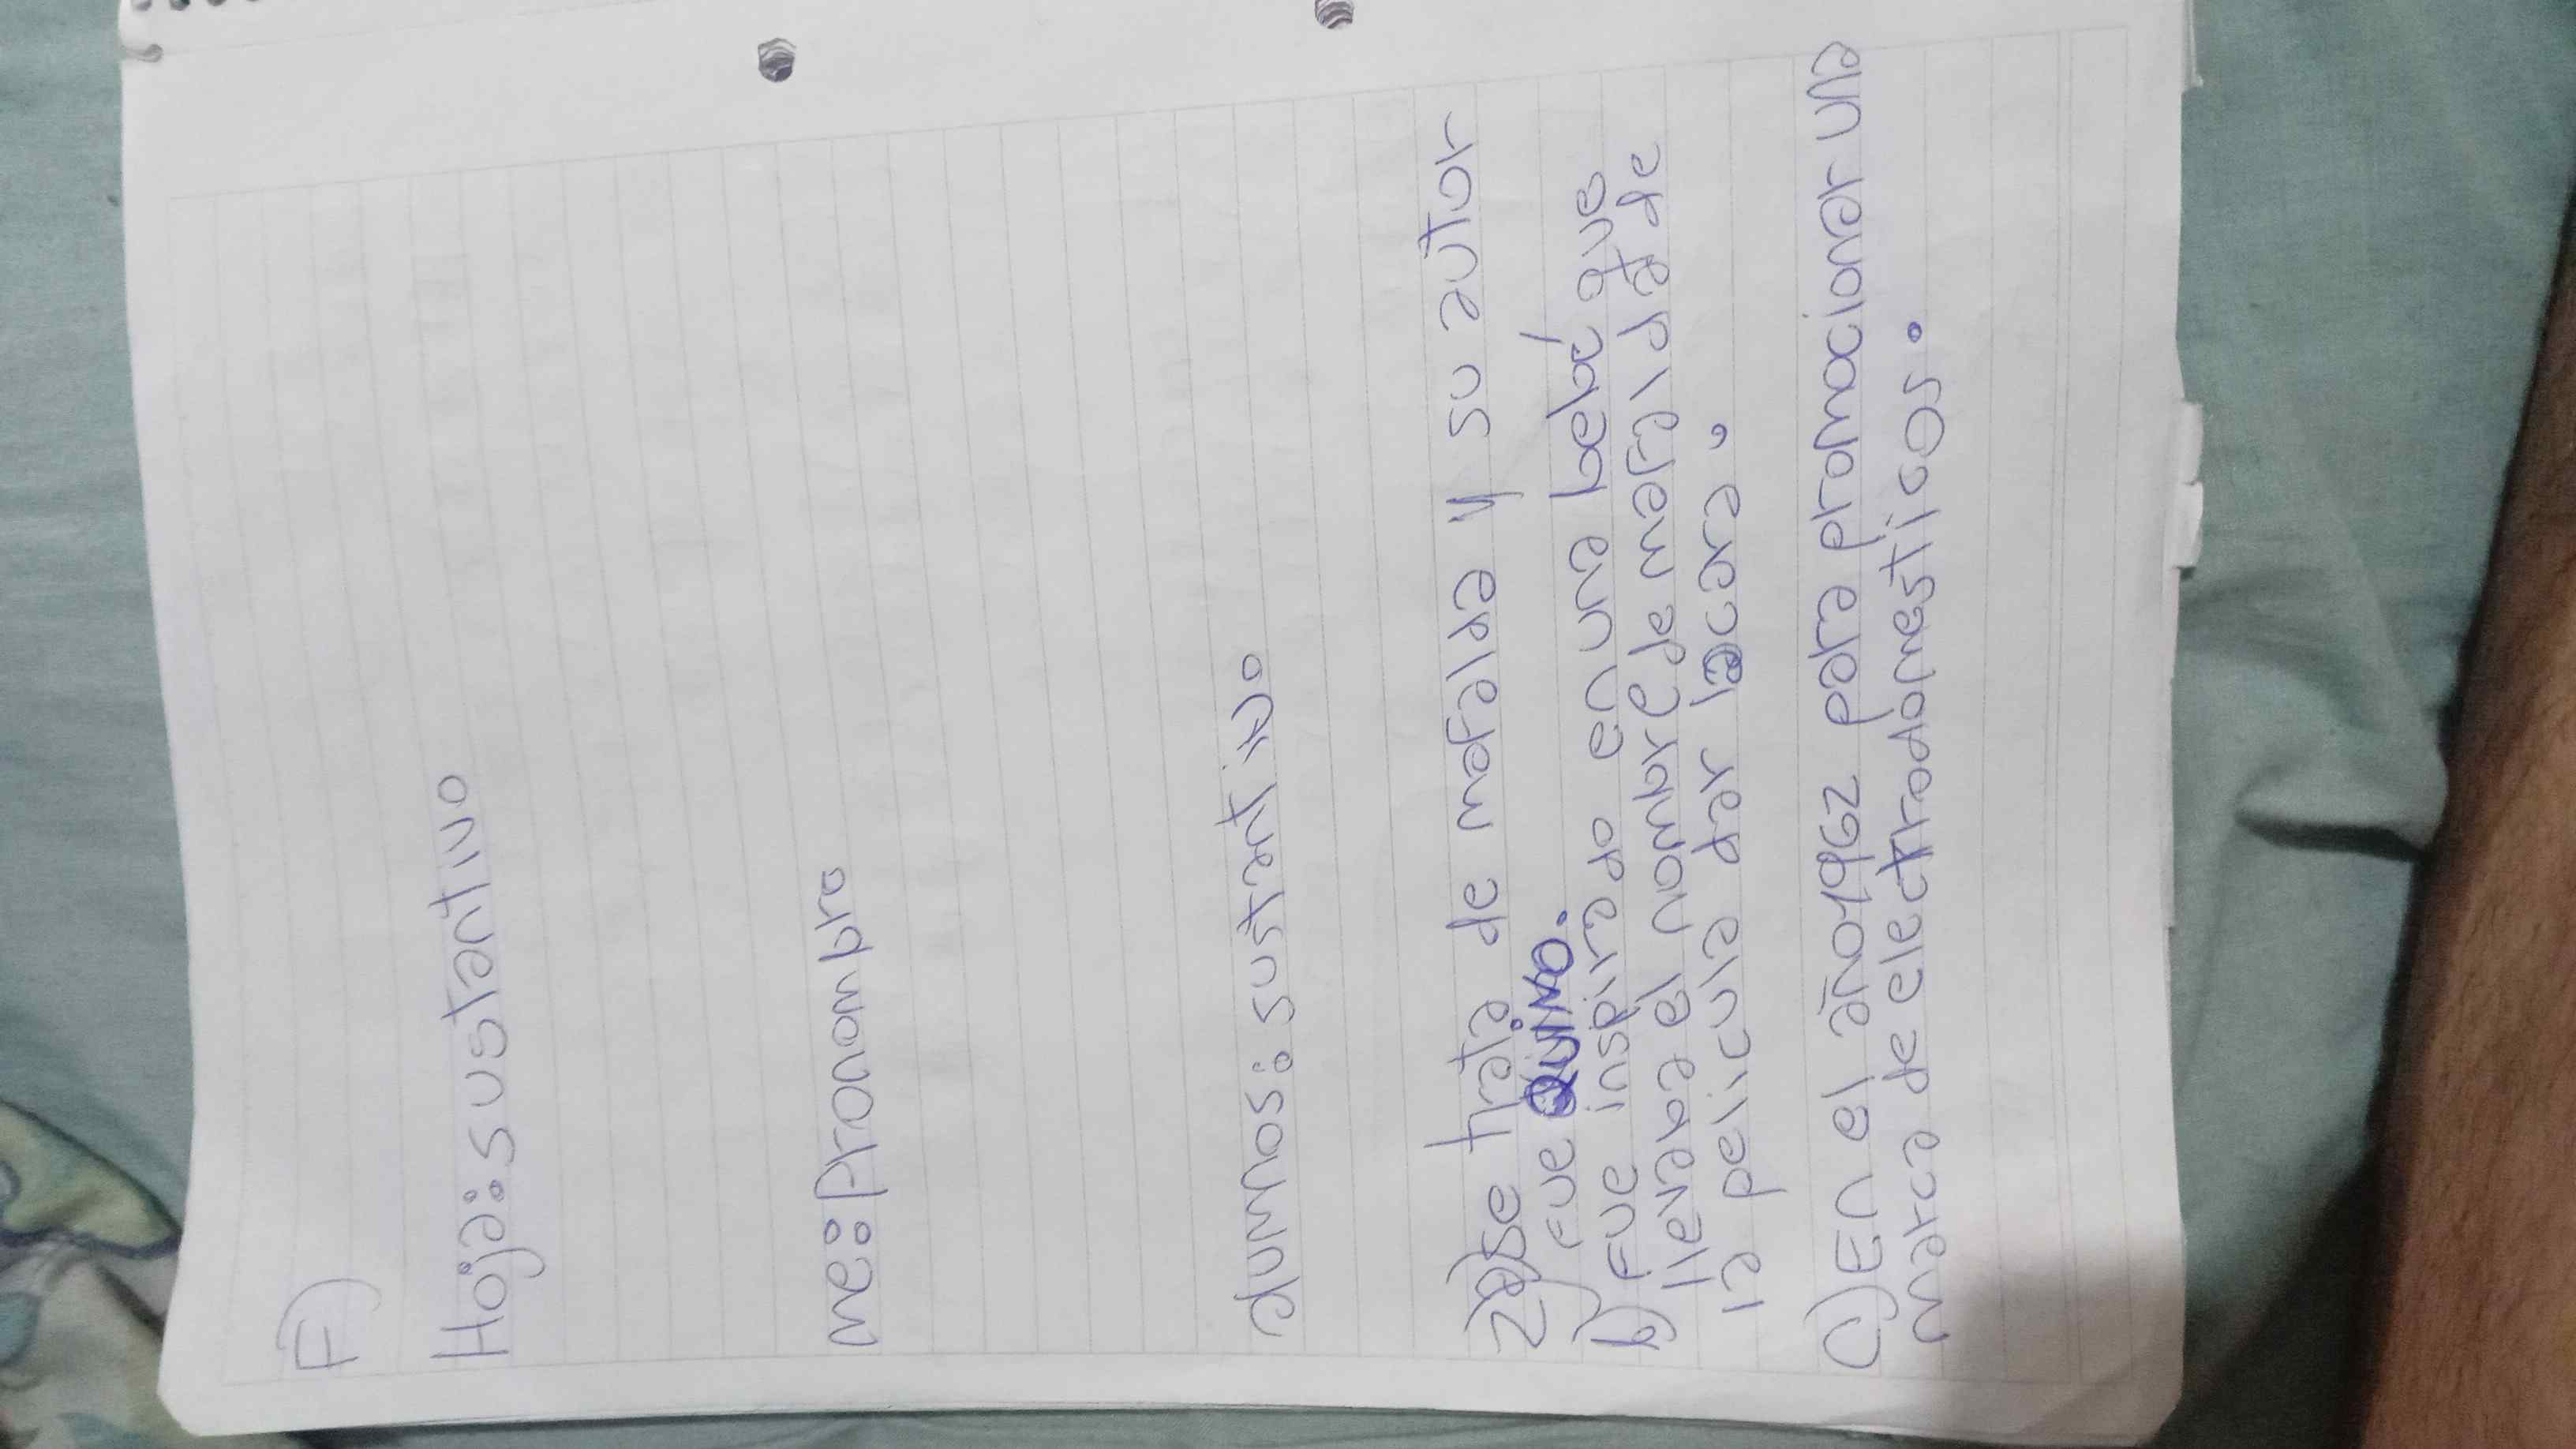 F)
Hoja: sustantivo
me: Pronombre
alumnos: sustantivo
2a) se trata de mafalda y su autor
fue QUINO.
b) Fue inspirado en una bebé que
llevaba el nombre de mafalda de
la pelicula dar la cara,
C) En el año 1962 para promocionar una
marca de electrodomesticos.